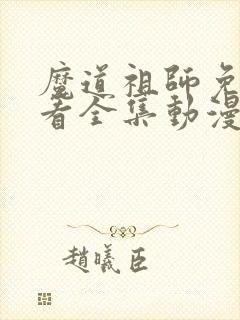 魔道祖師免
看全集動漫
趙曦臣